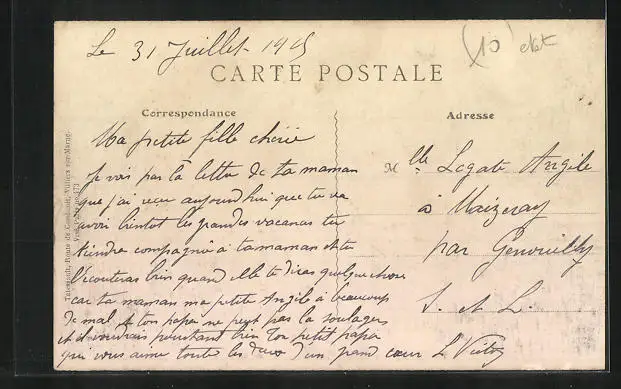 Le 31 Juillet 1915
CARTE POSTALE
Correspondance
Adresse
Ma petite fille chérie
Je vois par la lettre de ta maman
que j'ai reçu aujourd'hui que tu va
avoir bientot les grandes vacances tu
tiendra compagnie à ta maman et tu
l'écouteras bien quand elle te diras quelque chose
car ta maman ma petite Angèle à beaucoup
de mal et ton papa ne peut pas la soulager
et il voudrais pourtant bien Ton petit papa
qui vous aime toutes les deux d'un grand cœur L. Victor
Mlle Legate Angèle
à Maizeray
par Genouilly
S. et L.